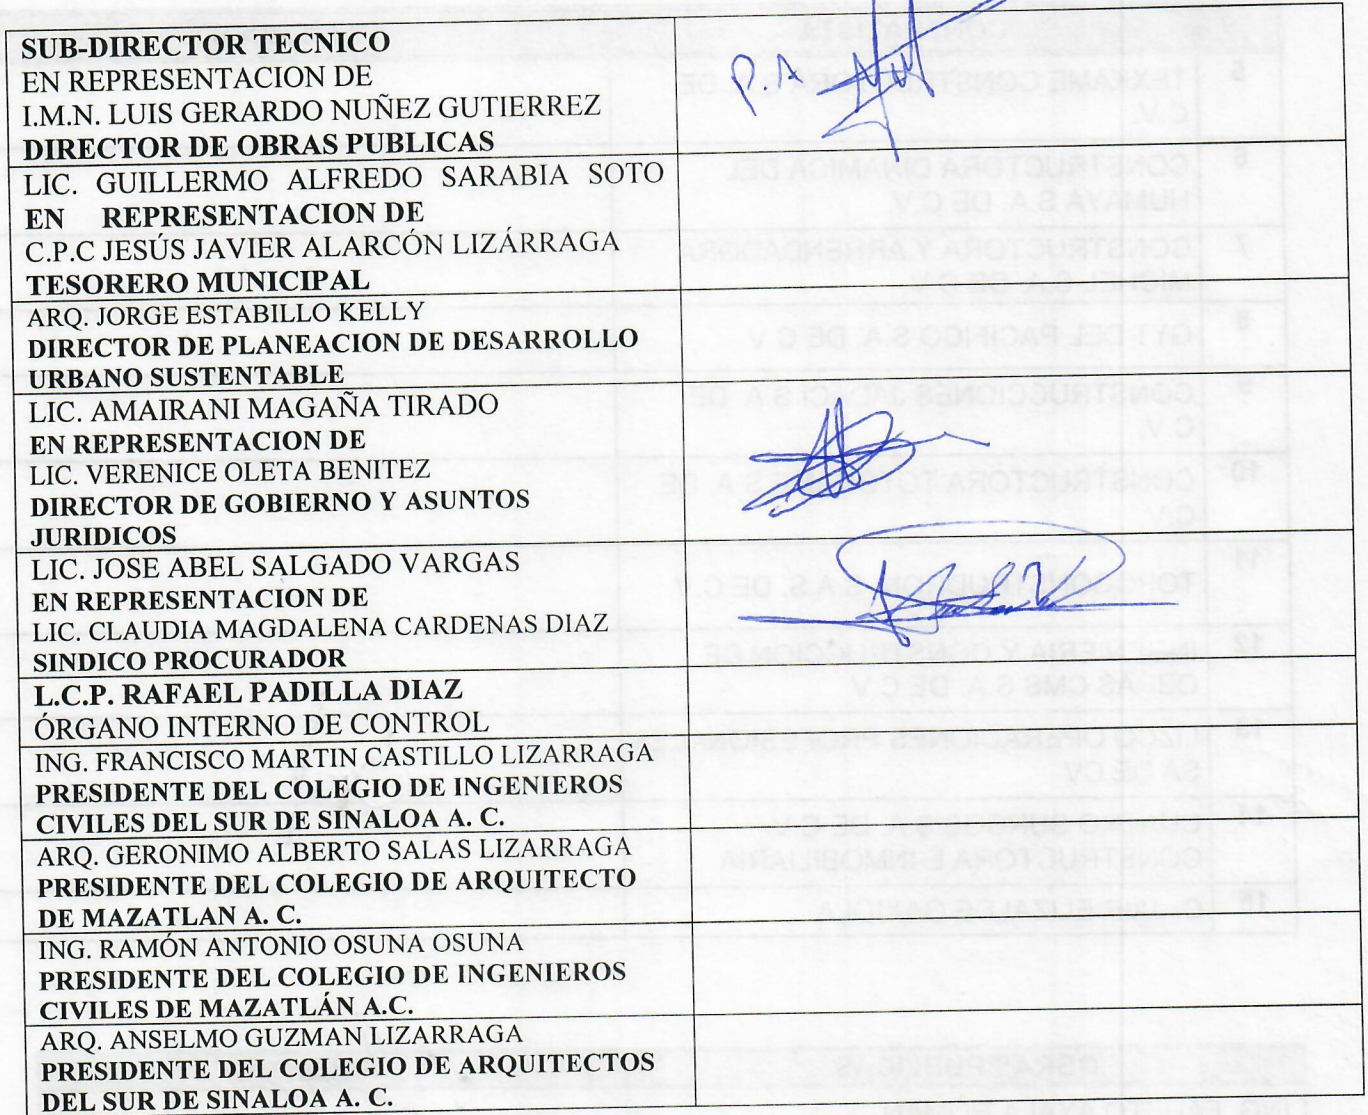 SUB-DIRECTOR TECNICO
EN REPRESENTACION DE
I.M.N. LUIS GERARDO NUÑEZ GUTIERREZ
DIRECTOR DE OBRAS PUBLICAS
P.A
LIC. GUILLERMO ALFREDO SARABIA SOTO
EN REPRESENTACION DE
C.P.C JESÚS JAVIER ALARCÓN LIZÁRRAGA
TESORERO MUNICIPAL
ARQ. JORGE ESTABILLO KELLY
DIRECTOR DE PLANEACION DE DESARROLLO
URBANO SUSTENTABLE
LIC. AMAIRANI MAGAÑA TIRADO
EN REPRESENTACION DE
LIC. VERENICE OLETA BENITEZ
DIRECTOR DE GOBIERNO Y ASUNTOS
JURIDICOS
LIC. JOSE ABEL SALGADO VARGAS
EN REPRESENTACION DE
LIC. CLAUDIA MAGDALENA CARDENAS DIAZ
SINDICO PROCURADOR
L.C.P. RAFAEL PADILLA DIAZ
ÓRGANO INTERNO DE CONTROL
ING. FRANCISCO MARTIN CASTILLO LIZARRAGA
PRESIDENTE DEL COLEGIO DE INGENIEROS
CIVILES DEL SUR DE SINALOA A. C.
ARQ. GERONIMO ALBERTO SALAS LIZARRAGA
PRESIDENTE DEL COLEGIO DE ARQUITECTO
DE MAZATLAN A. C.
ING. RAMÓN ANTONIO OSUNA OSUNA
PRESIDENTE DEL COLEGIO DE INGENIEROS
CIVILES DE MAZATLÁN A.C.
ARQ. ANSELMO GUZMAN LIZARRAGA
PRESIDENTE DEL COLEGIO DE ARQUITECTOS
DEL SUR DE SINALOA A. C.